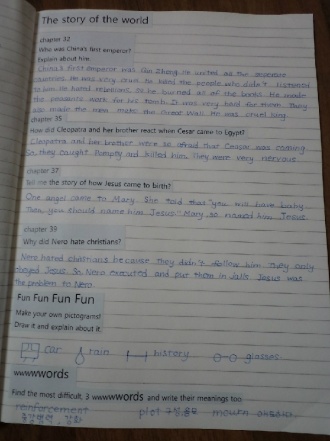 The story of the world
chapter 32
Who was China's first emperor?
Explain about him.
China's first emperor was Qin Zheng. He united all the separate
countries. He was very cruel to hand the people who didn't listened
to him. He hated so he burned all of the books. He made
the peasants work for his tomb. It was very bad for them. They
also made the men make the Great Wall. He was cruel king.
chapter 35
How did Cleopatra and her brother react when Cesar came to Egypt?
Cleopatra and her brother were so afraid that Ceasar was coming.
So, they caught Pompey and killed him. They were very nervous.
chapter 37
Tell me the story of how Jesus came to birth?
One angel came to Mary. She told that "you will have baby.
Then you should name him Jesus." Mary so named him Jesus.
chapter 39
Why did Nero hate chritians?
Nero hated christians because they didn't follow him. They only
obeyed Jesus. So Nero executed and put them in jails. Jesus was
the problem to Nero.
Fun Fun Fun Fun
Make your own pictograms!
Draw it and explain about it.
car rain history glasses
wwwwords
Find the most difficult, 3 wwwwords and write their meanings too.
reinforcement plot mourn